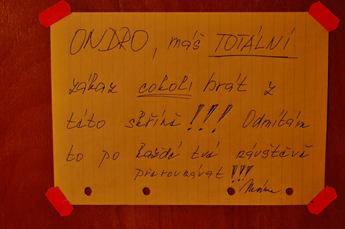 ONDRO, máš TOTÁLNÍ
zákaz cokoli brát z
této skříně!!! Odmítám
to po každé tvé návštěvě
přerovnávat!!!